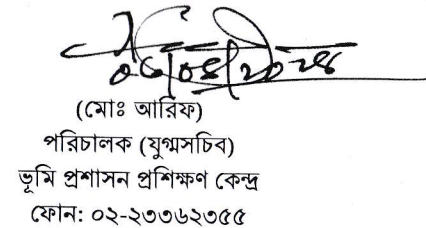 ০৬/০৪/২০২৪
(মোঃ আরিফ)
পরিচালক (যুগ্মসচিব)
ভূমি প্রশাসন প্রশিক্ষণ কেন্দ্র
ফোন: ০২-২৩৩৬২৩৫৫